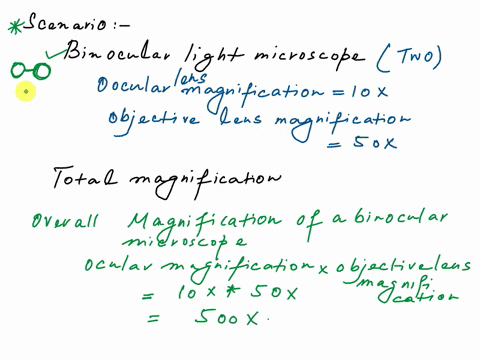 * Scenario:-
Binocular light microscope (Two)
Oocular lens magnification = 10x
objective lens magnification
= 50x
Total magnification
Overall Magnification of a binocular
microscope
ocular magnification x objective lens
magnifi
cation
= 10x * 50x
= 500x.